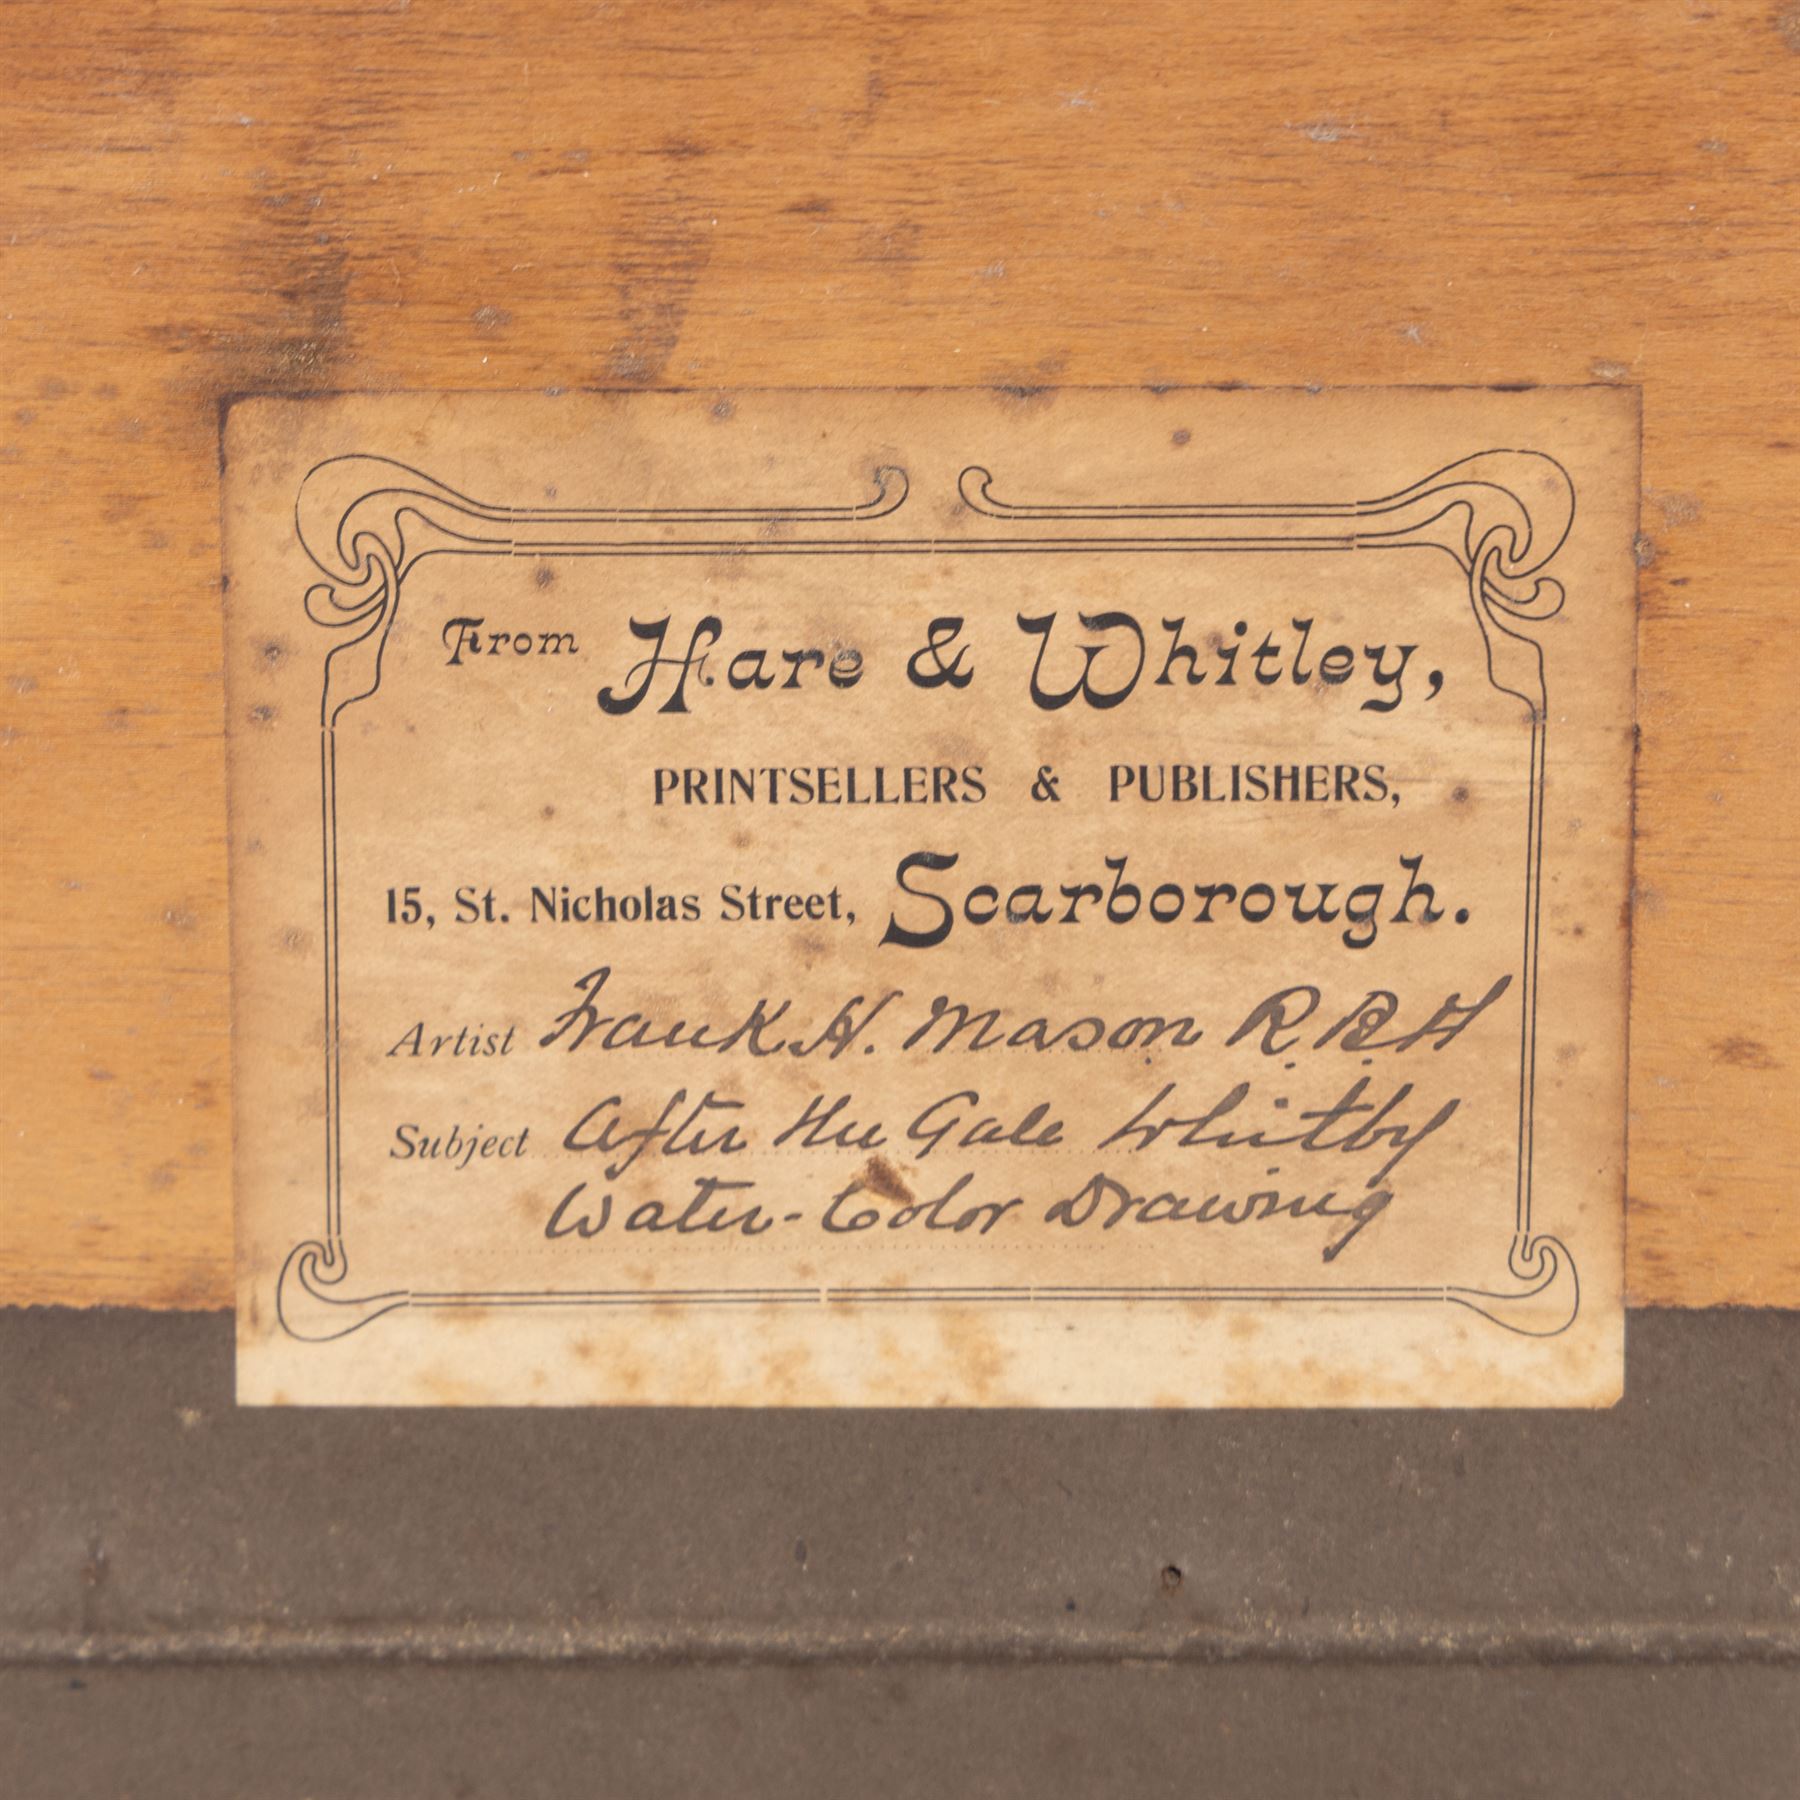 From Hare & Whitley,
PRINTSELLERS & PUBLISHERS,
15, St. Nicholas Street, Scarborough.
Artist Frank H. Mason R.B.A
Subject After the Gale Whitby
Water-Color Drawing